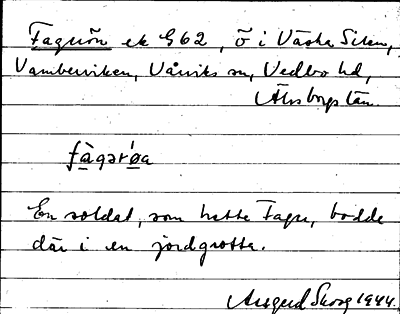 Fagerön ek G62, ö i Västra Silen,
Vamberviken, Vårviks sn, Vedbo hd,
Älvsborgs län.
fàgərø̀a
En soldat, som hette Fager, bodde
där i en jordgrotta.
Skog 1944.